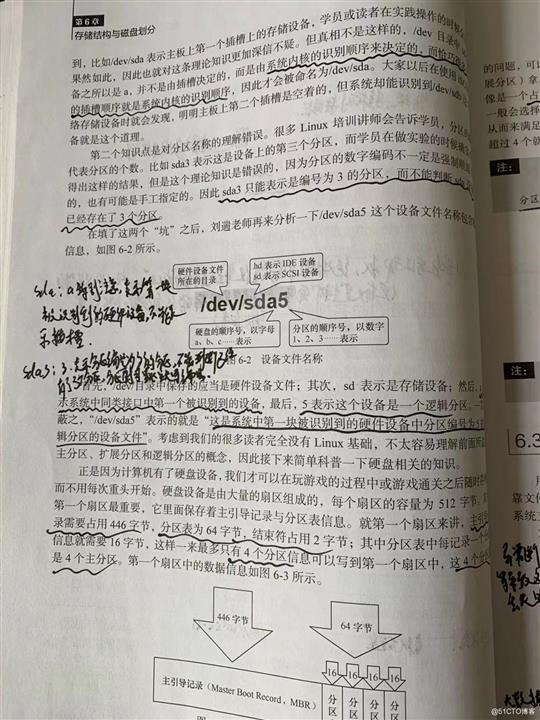 第6章
存储结构与磁盘划分
到，比如/dev/sda 表示主板上第一个插槽上的存储设备，学员或读者在实践操作的时候
果然如此，因此也就对这条理论知识更加深信不疑。但真相不是这样的，/dev 目录中
备之所以是 a，并不是由插槽决定的，而是由系统内核的识别顺序来决定的，而恰巧
的插槽顺序就是系统内核的识别顺序，因此才会被命名为/dev/sda。大家以后在使用
络存储设备时就会发现，明明主板上第二个插槽是空着的，但系统却能识别到/dev/sdb
备就是这个道理。
第二个知识点是对分区名称的理解错误。很多 Linux 培训讲师会告诉学员，分区的
代表分区的个数。比如 sda3 表示这是设备上的第三个分区，而学员在做实验的时候确
得出这样的结果，但是这个理论知识是错误的，因为分区的数字编码不一定是强制顺
的，也有可能是手工指定的。因此 sda3 只能表示是编号为 3 的分区，而不能判断 sda
已经存在了 3 个分区。
在填了这两个“坑”之后，刘遄老师再来分析一下/dev/sda5 这个设备文件名称包
信息，如图 6-2 所示。
硬件设备文件
所在的目录
hd 表示 IDE 设备
sd 表示 SCSI 设备
/dev/sda5
硬盘的顺序号，以字母
a、b、c……表示
分区的顺序号，以数字
1、2、3……表示
图6-2 设备文件名称
首先，/dev/目录中保存的应当是硬件设备文件；其次，sd 表示是存储设备；然后，
示系统中同类接口中第一个被识别到的设备，最后，5 表示这个设备是一个逻辑分区。一
蔽之，“/dev/sda5”表示的就是“这是系统中第一块被识别到的硬件设备中分区编号为 5
辑分区的设备文件”。考虑到我们的很多读者完全没有 Linux 基础，不太容易理解前面所
主分区、扩展分区和逻辑分区的概念，因此接下来简单科普一下硬盘相关的知识。
正是因为计算机有了硬盘设备，我们才可以在玩游戏的过程中或游戏通关之后随时
而不用每次重头开始。硬盘设备是由大量的扇区组成的，每个扇区的容量为 512 字节。
第一个扇区最重要，它里面保存着主引导记录与分区表信息。就第一个扇区来讲，主引
录需要占用 446 字节，分区表为 64 字节，结束符占用 2 字节；其中分区表中每记录一个
信息就需要 16 字节，这样一来最多只有 4 个分区信息可以写到第一个扇区中，这 4 个分
是 4 个主分区。第一个扇区中的数据信息如图 6-3 所示。
446 字节
64 字节
16 16 16 16
主引导记录（Master Boot Record，MBR）
分区 分区 分区 分区
的问题，可以
展分区）拿
像是一个占
一般会选择
从而来满足
超过 4 个就
注：
分区
注：
6.3
用
靠文件
系统
@51CTO博客